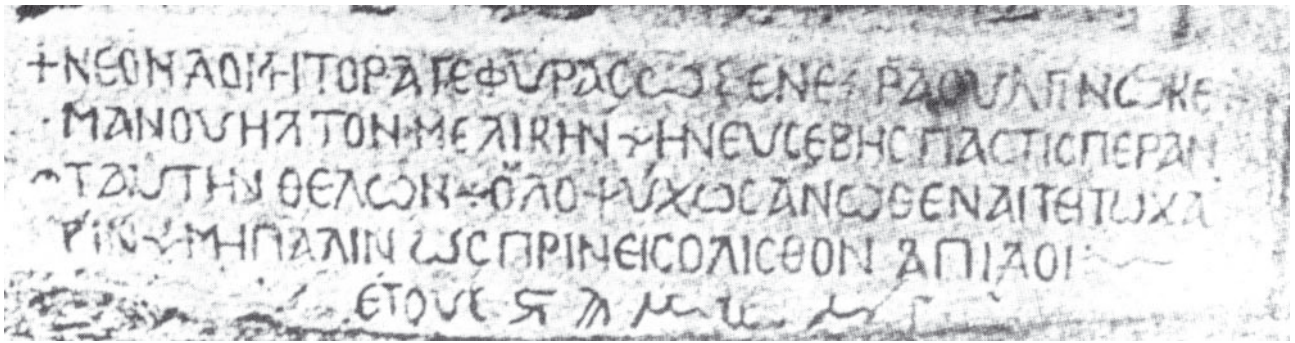 +ΝΕΟΝ ΔΟΜΗΤΟΡΑ ΓΕΦΥΡΑC Ω ΞΕΝΕ ΡΑΟΥΛ ΓΙΝΩCΚΕ
ΜΑΝΟΥΗΛ ΤΟΝ ΜΕΛΙΚΗΝ ΗΝ ΕΥCΕΒΗC ΠΑC ΤΙC ΠΕΡΑΝ
ΤΑΥΤΗΝ ΘΕΛΩΝ ΟΛΟΨΥΧΩC ΑΝΩΘΕΝ ΑΙΤΕΙΤΩ ΧΑ
ΡΙΝ ΜΗ ΠΑΛΙΝ ΩC ΠΡΙΝ ΕΙC ΟΛΙCΘΟΝ ΑΠΙΔΟΙ
ΕΤΟΥC Ϛ Ϡ Μ